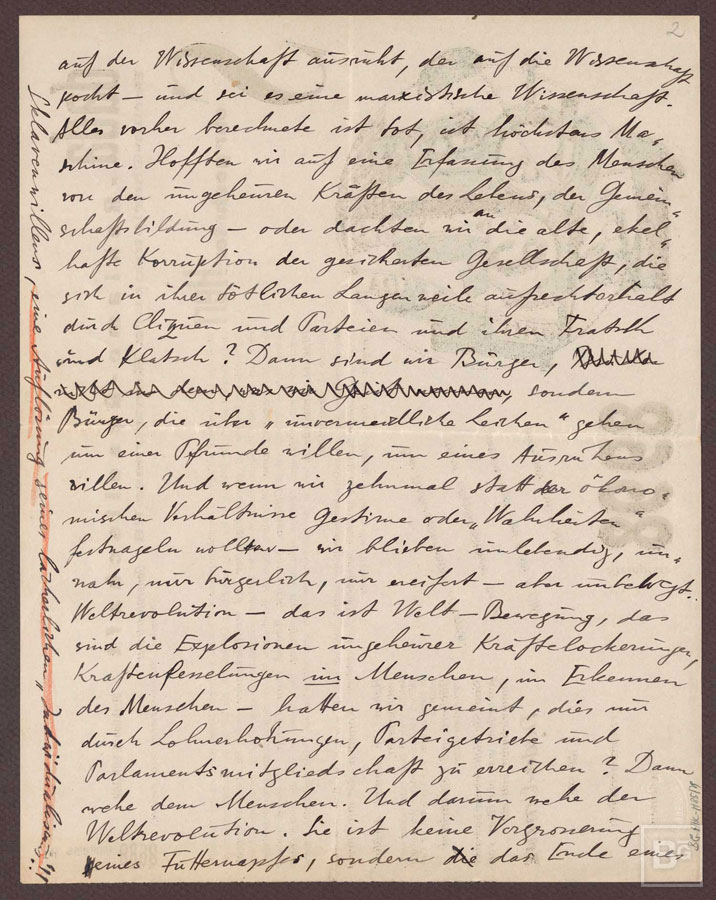 2
auf der Wissenschaft ausruht, der auf die Wissenschaft
pocht – und sei es eine marxistische Wissenschaft.
Alles vorher berechnete ist tot, ist höchstens Ma-
schine. Hofften wir auf eine Erfassung des Menschen
von den ungeheuren Kräften des Lebens, der Gemein-
schaftsbildung – oder dachten wir an die alte, ekel-
hafte Korruption der gesicherten Gesellschaft, die
sich in ihrer tötlichen Langenweile aufrechterhält
durch Cliquen und Parteien und ihren Tratsch
und Klatsch? Dann sind wir Bürger,
sondern
Bürger, die über „unvermeidliche Leichen“ gehen
um einer Pfründe willen, um eines Ausruhens
willen. Und wenn wir zehnmal statt der ökono-
mischen Verhältnisse Gestirne oder „Wahrheiten“
festnageln wollten – wir blieben unlebendig, un-
nahr, nur bürgerlich, nur ereifert – aber unbewegt.
Weltrevolution – das ist Welt-Bewegung, das
sind die Explosionen ungeheurer Kräftelockerungen,
Kräftenfesselungen im Menschen, im Erkennen
des Menschen – hatten wir gemeint, dies nur
durch Lohnerhöhungen, Parteigetriebe und
Parlamentsmitgliedschaft zu erreichen? Dann
wehe dem Menschen. Und darum wehe der
Weltrevolution. Sie ist keine Vergrösserung
eines Futternapfes, sondern das Ende eines
Sklavenwillens, eine Auflösung seines lächerlichen „Individualismus“.
BG